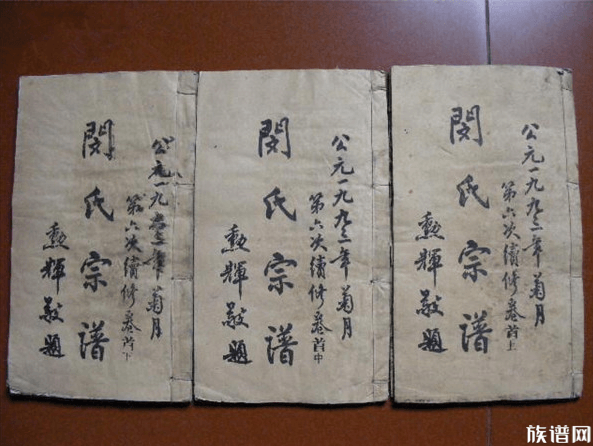 公元一九九二年菊月
第六次續修卷首上
閔氏宗譜
勲輝敬題
公元一九九二年菊月
第六次續修卷首中
閔氏宗譜
勲輝敬題
公元一九九二年菊月
第六次續修卷首下
閔氏宗譜
勲輝敬題
族谱网